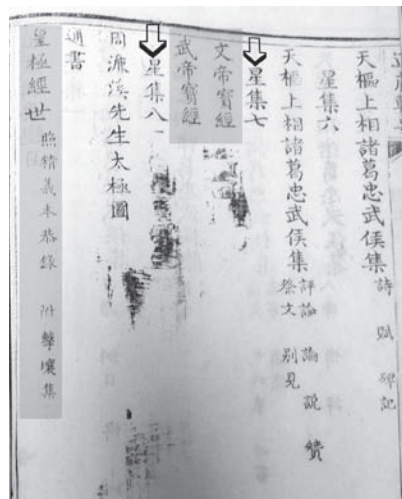 天樞上相諸葛忠武侯集 詩 賦 碑記
星集六
天樞上相諸葛忠武侯集 評論 論 說 贊 祭文 別見
星集七
文帝寶經
武帝寶經
星集八
周濂溪先生太極圖
通書
皇極經世 照精義本恭錄 附擊壤集